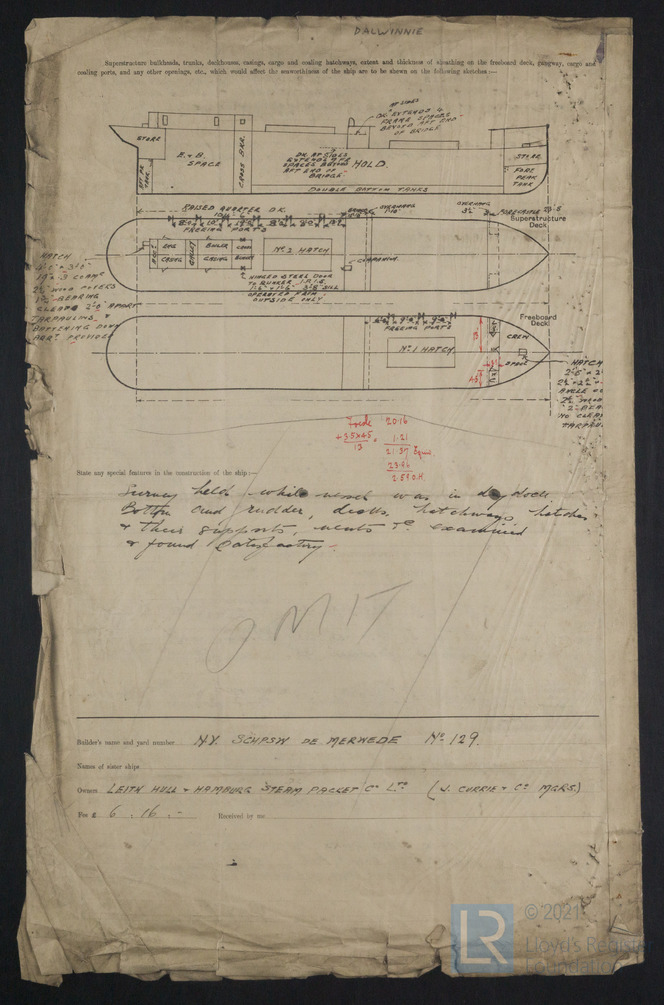 DALWINNIE
Superstructure bulkheads, trunks, deckhouses, casings, cargo and coaling hatchways, extent and thickness of sheathing on the freeboard deck, gangway, cargo and
coaling ports, and any other openings, etc., which would affect the seaworthiness of the ship are to be shown on the following sketches :—
AT SIDES
DK. EXTENDS 4
FRAME SPACES
BEYOND AFT END
OF BRIDGE
STORE
E. & B.
SPACE
CROSS BKR.
DK. AT SIDES
EXTENDS
SPACES
AFT END OF
BRIDGE
HOLD.
STORE
FORE
PEAK
TANK
DOUBLE BOTTOM TANKS
RAISED QUARTER DK.
OVERHANG
OVERHANG
FORECASTLE
Superstructure
Deck
FREEING PORTS
ENG
CASING
GALLEY
BOILER
CASING
Nº 2 HATCH
COMPANION.
HINGED STEEL DOOR
TO BUNKER
OPERATED FROM
OUTSIDE ONLY
HATCH
WOOD COVERS
BEARING
CLEATS 2'0" APART
TARPAULINS &
BATTENING DOWN
ARRT PROVIDED
Freeboard
Deck
FREEING PORTS
Nº 1 HATCH.
CREW
SPACE
HATCH
NO CLEA
TARPAU
20.16
+ 3.5 x 4.5
13
1.21
21.37
23.96
2.59 O.H
State any special features in the construction of the ship :—
Survey held while vessel was in dry dock
Bottom and rudder, decks, hatchways, hatches
& their supports, vents &c. examined
& found satisfactory.
OMIT
Builder's name and yard number N.V. SCHPSW DE MERWEDE Nº 129.
Names of sister ships
Owners LEITH HULL & HAMBURG STEAM PACKET Cº LTD (J. CURRIE & Cº MGRS.)
Fee £ 6 . 16 . -
Received by me
LR
© 2021
Lloyd's Register
Foundation